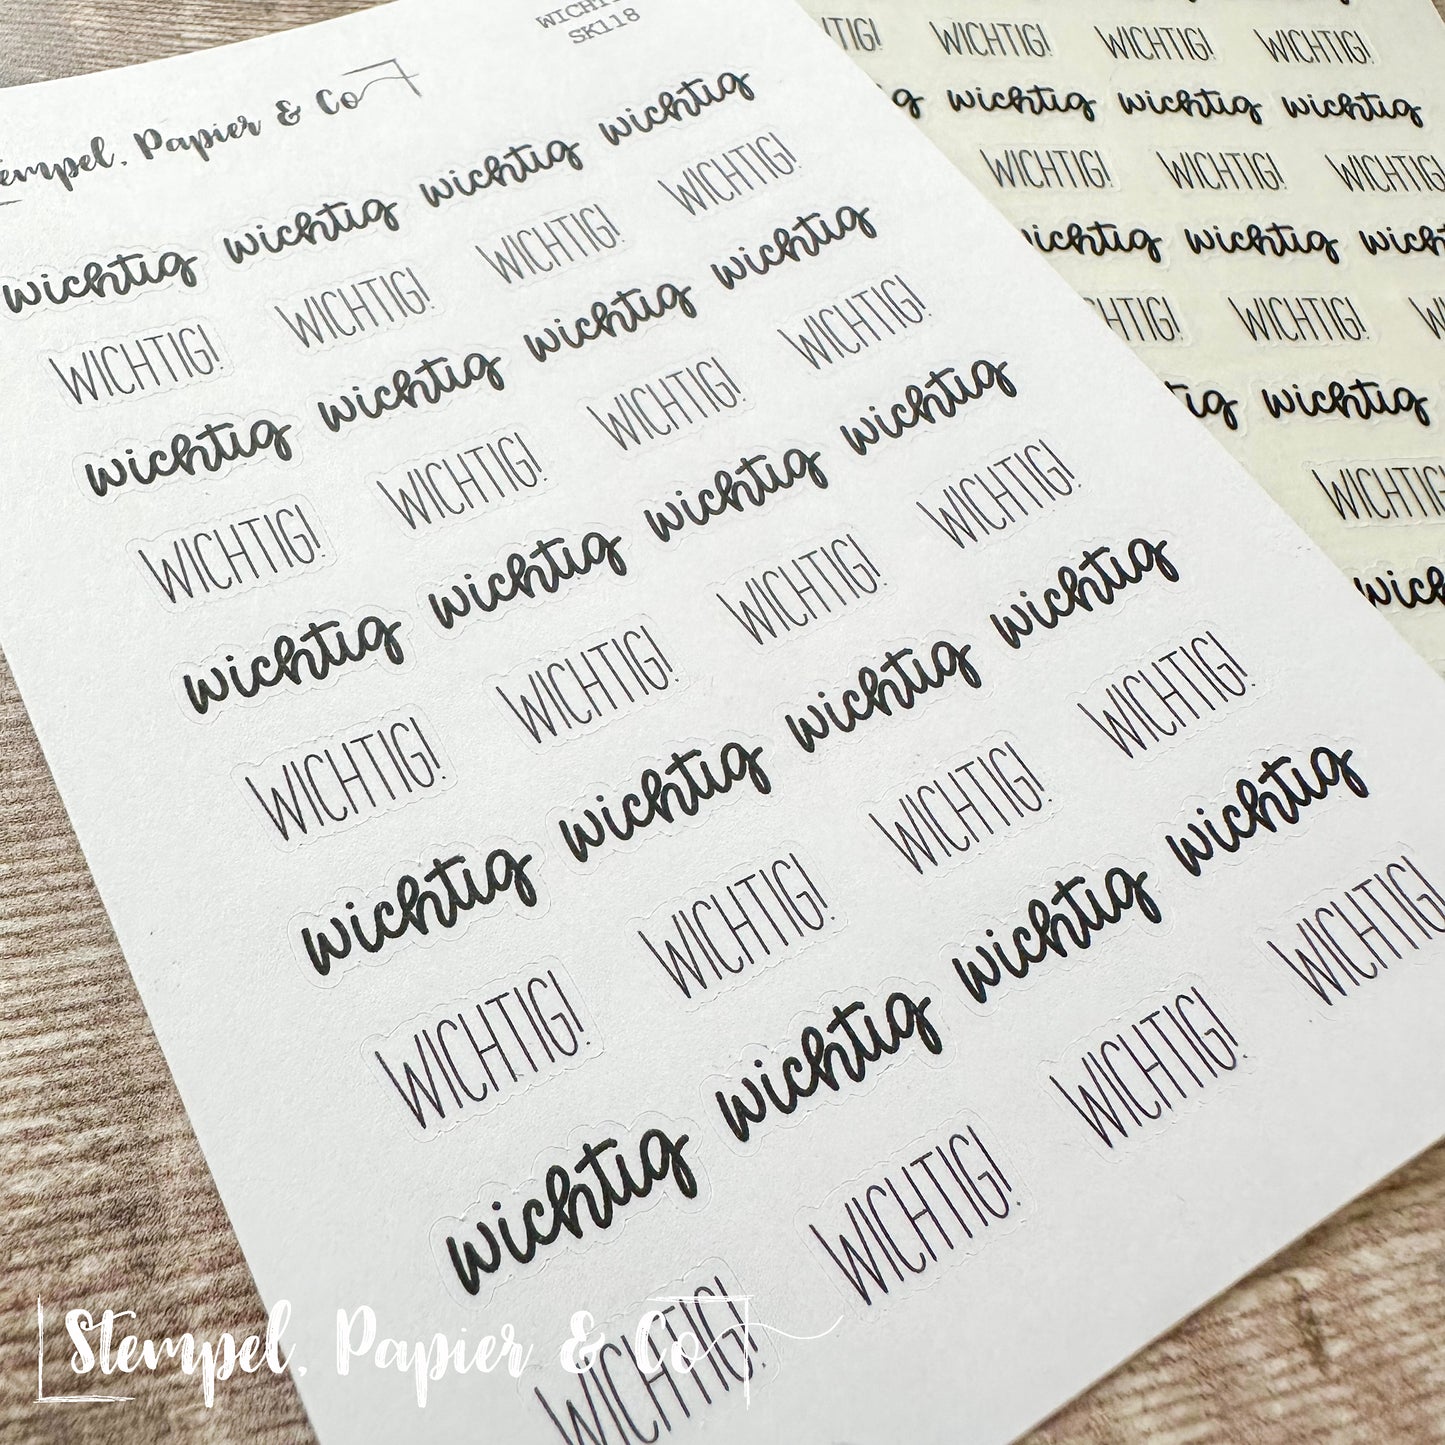 WICHTI
SK118
empel, Papier & Co
wichtig wichtig wichtig wichtig
WICHTIG! WICHTIG! WICHTIG! WICHTIG!
wichtig wichtig wichtig wichtig
WICHTIG! WICHTIG! WICHTIG! WICHTIG!
wichtig wichtig wichtig wichtig
WICHTIG! WICHTIG! WICHTIG! WICHTIG!
wichtig wichtig wichtig wichtig
WICHTIG! WICHTIG! WICHTIG! WICHTIG!
wichtig wichtig wichtig wichtig
WICHTIG! WICHTIG! WICHTIG! WICHTIG
WICHTIG! WICHTIG! WICHTIG!
g wichtig wichtig wichtig
WICHTIG! WICHTIG! WICHTIG
ichtig wichtig wicht
HTIG! WICHTIG! W
tig wichtig
WICHTIG
wich
Stempel, Papier & Co